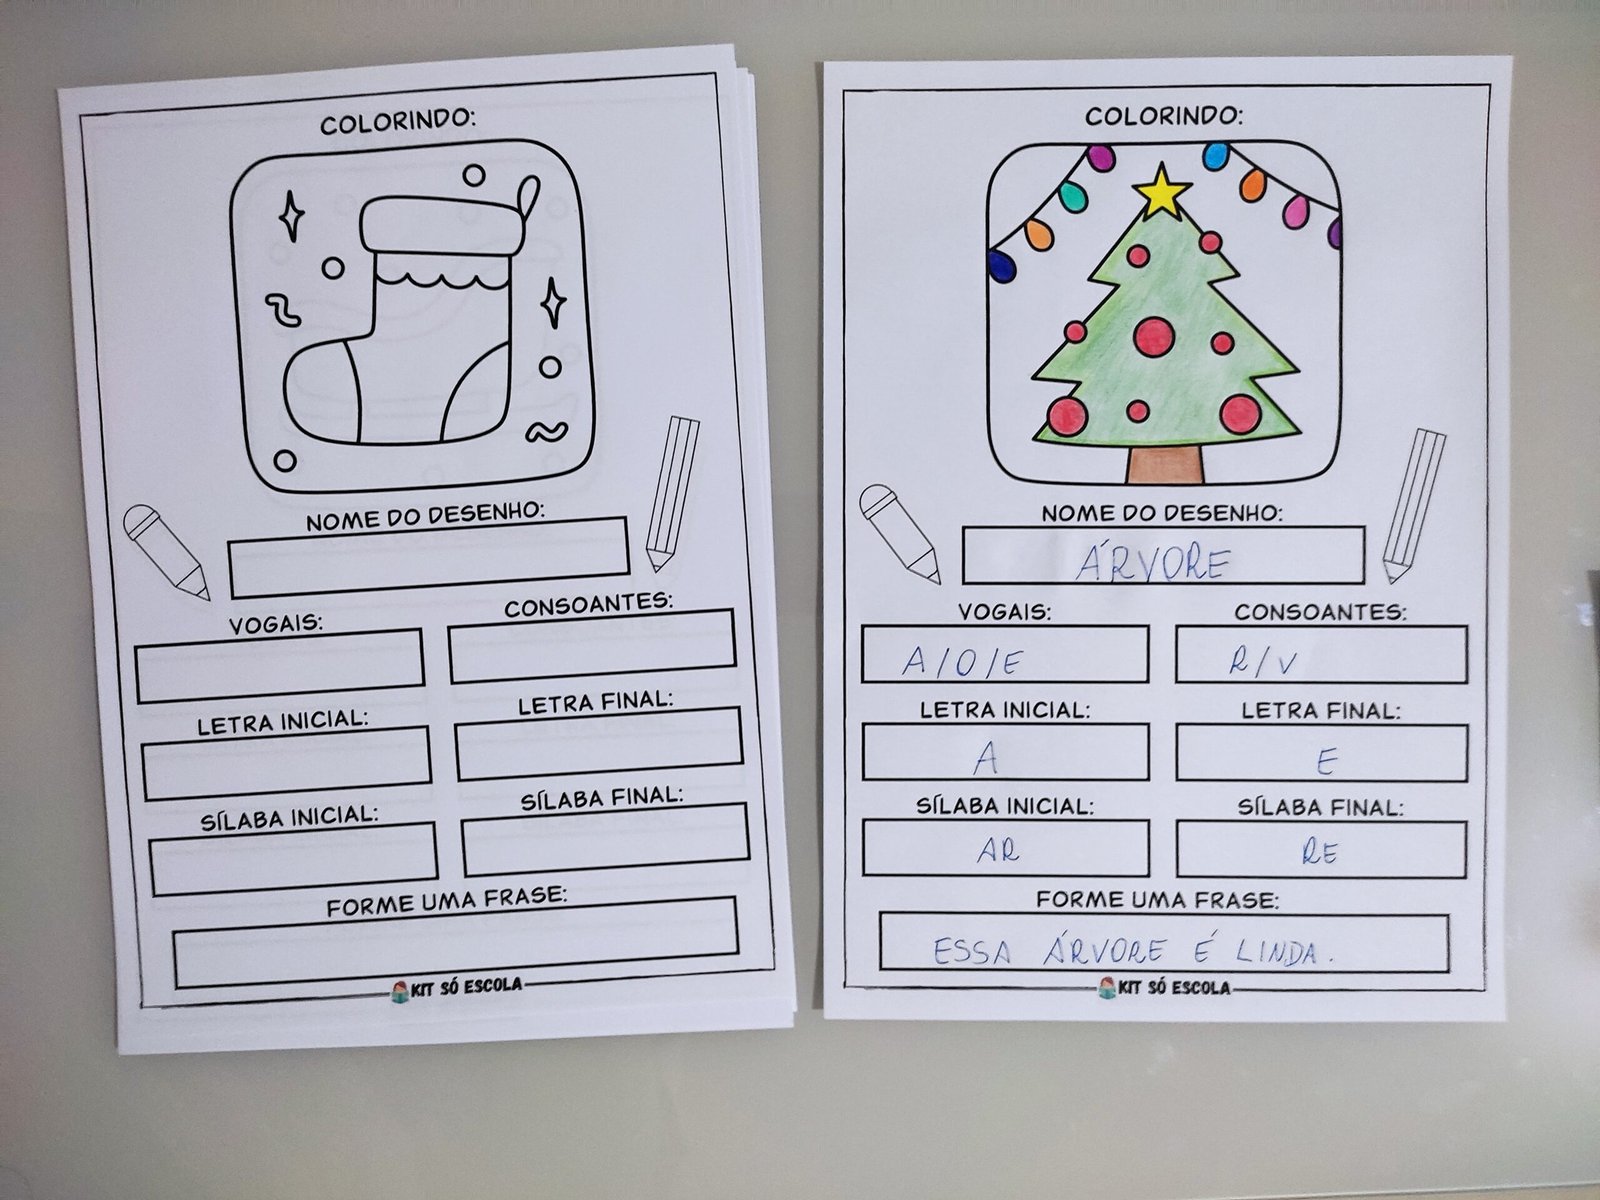 COLORINDO:
NOME DO DESENHO:
VOGAIS:
CONSOANTES:
LETRA INICIAL:
LETRA FINAL:
SÍLABA INICIAL:
SÍLABA FINAL:
FORME UMA FRASE:
KIT SÓ ESCOLA
COLORINDO:
NOME DO DESENHO:
ÁRVORE
VOGAIS:
CONSOANTES:
A/O/E
R/V
LETRA INICIAL:
LETRA FINAL:
A
E
SÍLABA INICIAL:
SÍLABA FINAL:
AR
RE
FORME UMA FRASE:
ESSA ÁRVORE É LINDA.
KIT SÓ ESCOLA